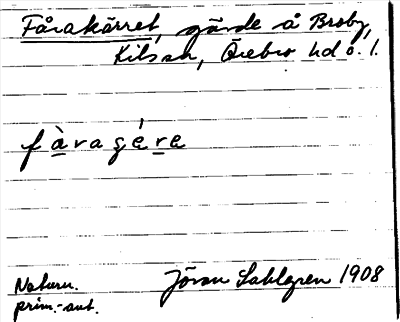 Fårakärret, gärde å Broby,
Kils sn, Örebro hd ö. l.
fàragére
Naturn.
prim.-ant.
Jöran Sahlgren 1908